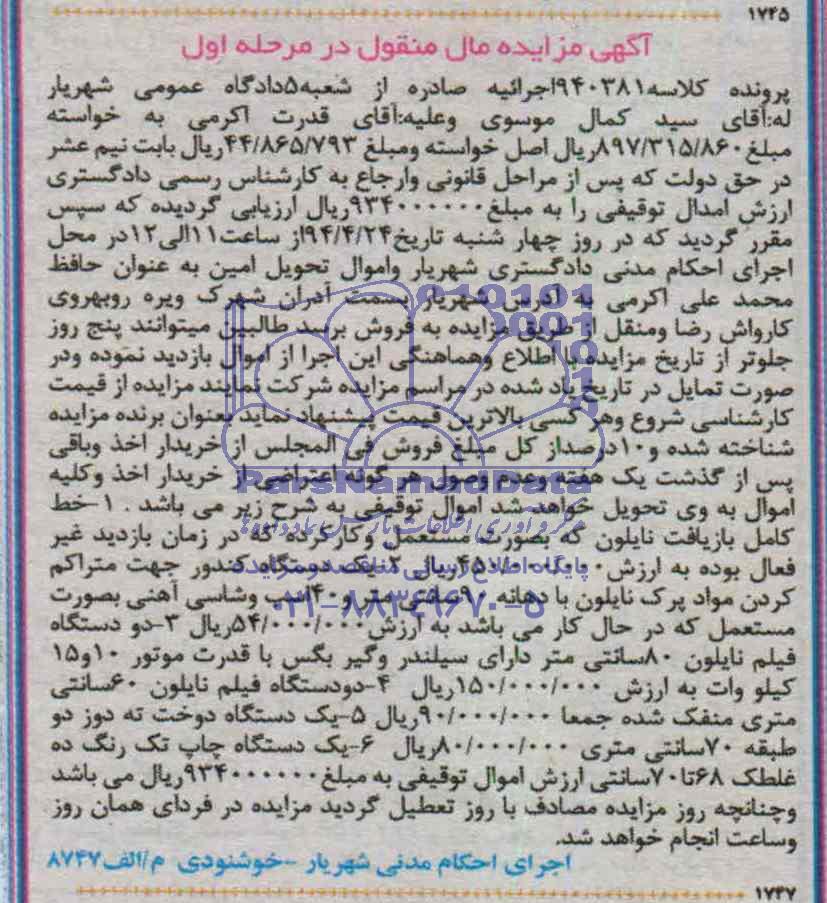 ۱۷۴۵
آگهی مزایده مال منقول در مرحله اول
پرونده کلاسه۹۴۰۳۸۱اجرائیه صادره از شعبه۵دادگاه عمومی شهریار
له:آقای سید کمال موسوی وعلیه:آقای قدرت اکرمی به خواسته
مبلغ۸۹۷/۳۱۵/۸۶۰ریال اصل خواسته ومبلغ ۴۴/۸۶۵/۷۹۳ریال بابت نیم عشر
در حق دولت که پس از مراحل قانونی وارجاع به کارشناس رسمی دادگستری
ارزش امدال توقیفی را به مبلغ۹۳۴۰۰۰۰۰۰ریال ارزیابی گردیده که سپس
مقرر گردید که در روز چهار شنبه تاریخ۹۴/۴/۲۴از ساعت۱۱الی۱۲در محل
اجرای احکام مدنی دادگستری شهریار واموال تحویل امین به عنوان حافظ
محمد علی اکرمی به آدرس شهریار بسمت آدران شهرک ویره روبهروی
کارواش رضا ومنقل از طریق مزایده به فروش برسد طالبین میتوانند پنج روز
جلوتر از تاریخ مزایده با اطلاع وهماهنگی این اجرا از اموال بازدید نموده ودر
صورت تمایل در تاریخ یاد شده در مراسم مزایده شرکت نمایند مزایده از قیمت
کارشناسی شروع وهر کسی بالاترین قیمت پیشنهاد نماید بعنوان برنده مزایده
شناخته شده و۱۰درصداز کل مبلغ فروش فی المجلس از خریدار اخذ وباقی
پس از گذشت یک هفته وعدم وصول هر گونه اعتراضی از خریدار اخذ وکلیه
اموال به وی تحویل خواهد شد اموال توقیفی به شرح زیر می باشد . ۱-خط
کامل بازیافت نایلون که بصورت مستعمل وکارکرده که در زمان بازدید غیر
فعال بوده به ارزش ریال ۲-یک دستگاه کندور جهت متراکم
کردن مواد پرک نایلون با دهانه ۹۰سانتی متر و۴۰اسب وشاسی آهنی بصورت
مستعمل که در حال کار می باشد به ارزش۵۴/۰۰۰/۰۰۰ریال ۳-دو دستگاه
فیلم نایلون ۸۰سانتی متر دارای سیلندر وگیر بگس با قدرت موتور ۱۰و۱۵
کیلو وات به ارزش ۱۵۰/۰۰۰/۰۰۰ریال ۴-دودستگاه فیلم نایلون ۶۰سانتی
متری منفک شده جمعا ۹۰/۰۰۰/۰۰۰ریال ۵-یک دستگاه دوخت ته دوز دو
طبقه ۷۰سانتی متری ۸۰/۰۰۰/۰۰۰ریال ۶-یک دستگاه چاپ تک رنگ ده
غلطک ۶۸تا۷۰سانتی ارزش اموال توقیفی به مبلغ۹۳۴۰۰۰۰۰۰ریال می باشد
وچنانچه روز مزایده مصادف با روز تعطیل گردید مزایده در فردای همان روز
وساعت انجام خواهد شد.
اجرای احکام مدنی شهریار -خوشنودی م/الف۸۷۴۷
۱۷۴۷
ParsNamadData
پایگاه اطلاع رسانی مناقصه و مزایده
۰۲۱-۸۸۳۴۹۶۷۰-۵